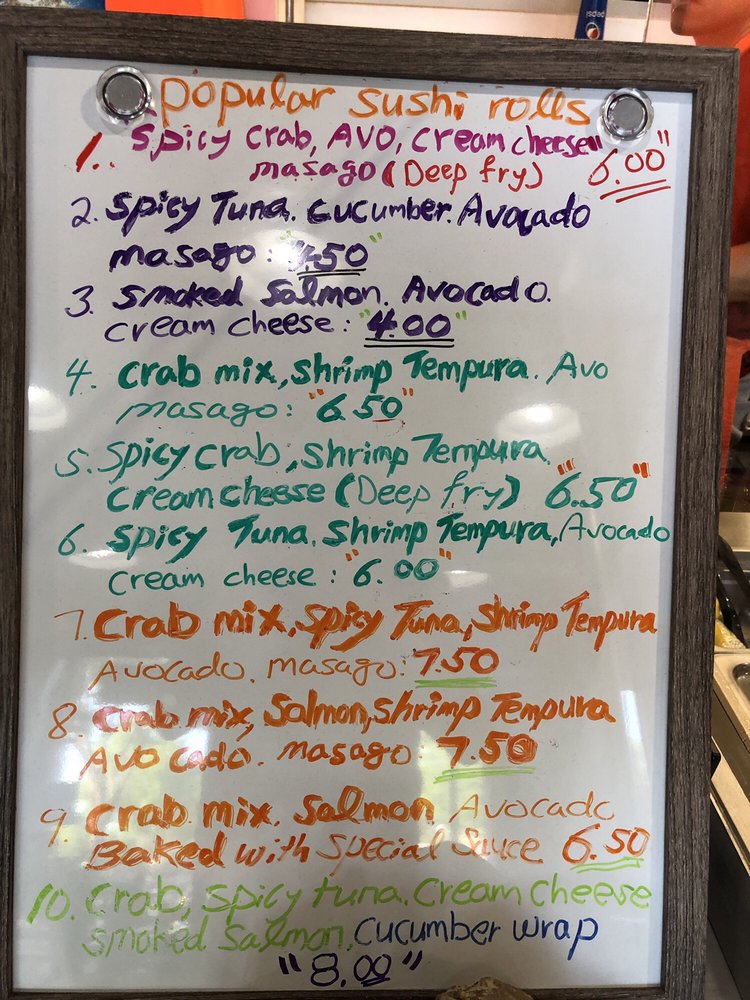 pepsi
popular sushi rolls
1. Spicy crab, AVO, cream cheese
masago (Deep fry) "6.00"
2. Spicy Tuna. cucumber. Avocado
masago: "4.50"
3. smoked Salmon. Avocado.
cream cheese: "4.00"
4. crab mix, shrimp Tempura. Avo
masago: "6.50"
5. Spicy crab, shrimp Tempura.
cream cheese (Deep fry) "6.50"
6. Spicy Tuna. shrimp Tempura, Avocado
cream cheese: "6.00"
7. Crab mix, Spicy Tuna, shrimp Tempura
Avocado. masago: 7.50
8. crab mix, Salmon, shrimp Tempura
Avocado. masago: 7.50
9. Crab mix. Salmon Avocado
Baked with Special Sauce 6.50
10. Crab, spicy tuna. Cream cheese
smoked salmon. cucumber wrap
"8.00"